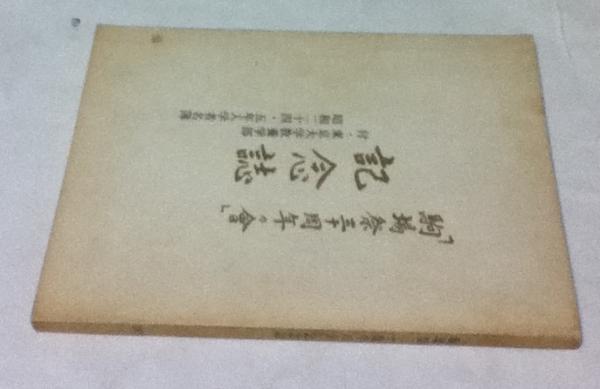 「駒場祭三十周年の会」
記念誌
付・東京大学教養学部
昭和二十四・五年入学者名簿